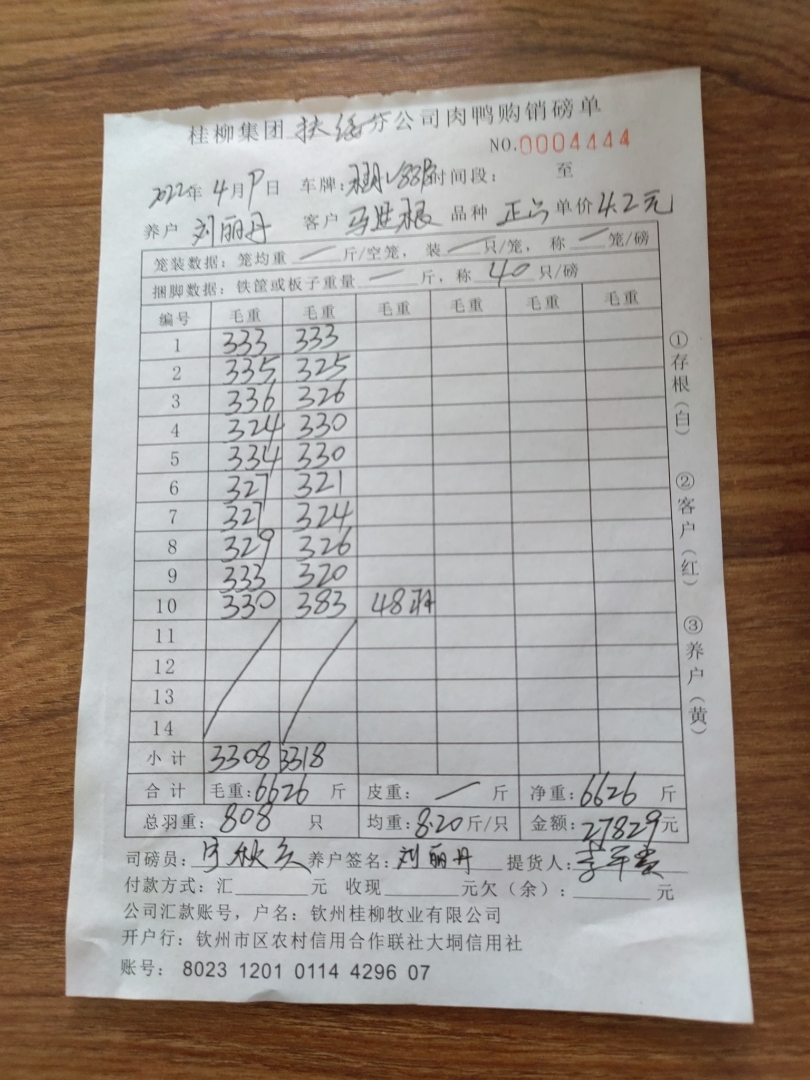 桂柳集团 扶绥 分公司肉鸭购销磅单
NO.0004444
2022年 4月9日 车牌: 时间段: 至
养户 刘丽丹 客户 马进根 品种 正 单价 4.2元
笼装数据: 笼均重 — 斤/空笼, 装 — 只/笼, 称 — 笼/磅
捆脚数据: 铁筐或板子重量 — 斤, 称 40 只/磅
编号 毛重 毛重 毛重 毛重 毛重 毛重
1 333 333
2 335 325
3 336 326
4 324 330
5 334 330
6 327 321
7 327 324
8 329 326
9 333 320
10 330 383 48羽
11
12
13
14
小计 3308 3318
合计 毛重: 6626 斤 皮重: — 斤 净重: 6626 斤
总羽重: 808 只 均重: 8.20 斤/只 金额: 27829元
司磅员: 养户签名: 刘丽丹 提货人:
付款方式: 汇 元 收现 元欠(余): 元
公司汇款账号, 户名: 钦州桂柳牧业有限公司
开户行: 钦州市区农村信用合作联社大垌信用社
账号: 8023 1201 0114 4296 07
①存根(白) ②客户(红) ③养户(黄)